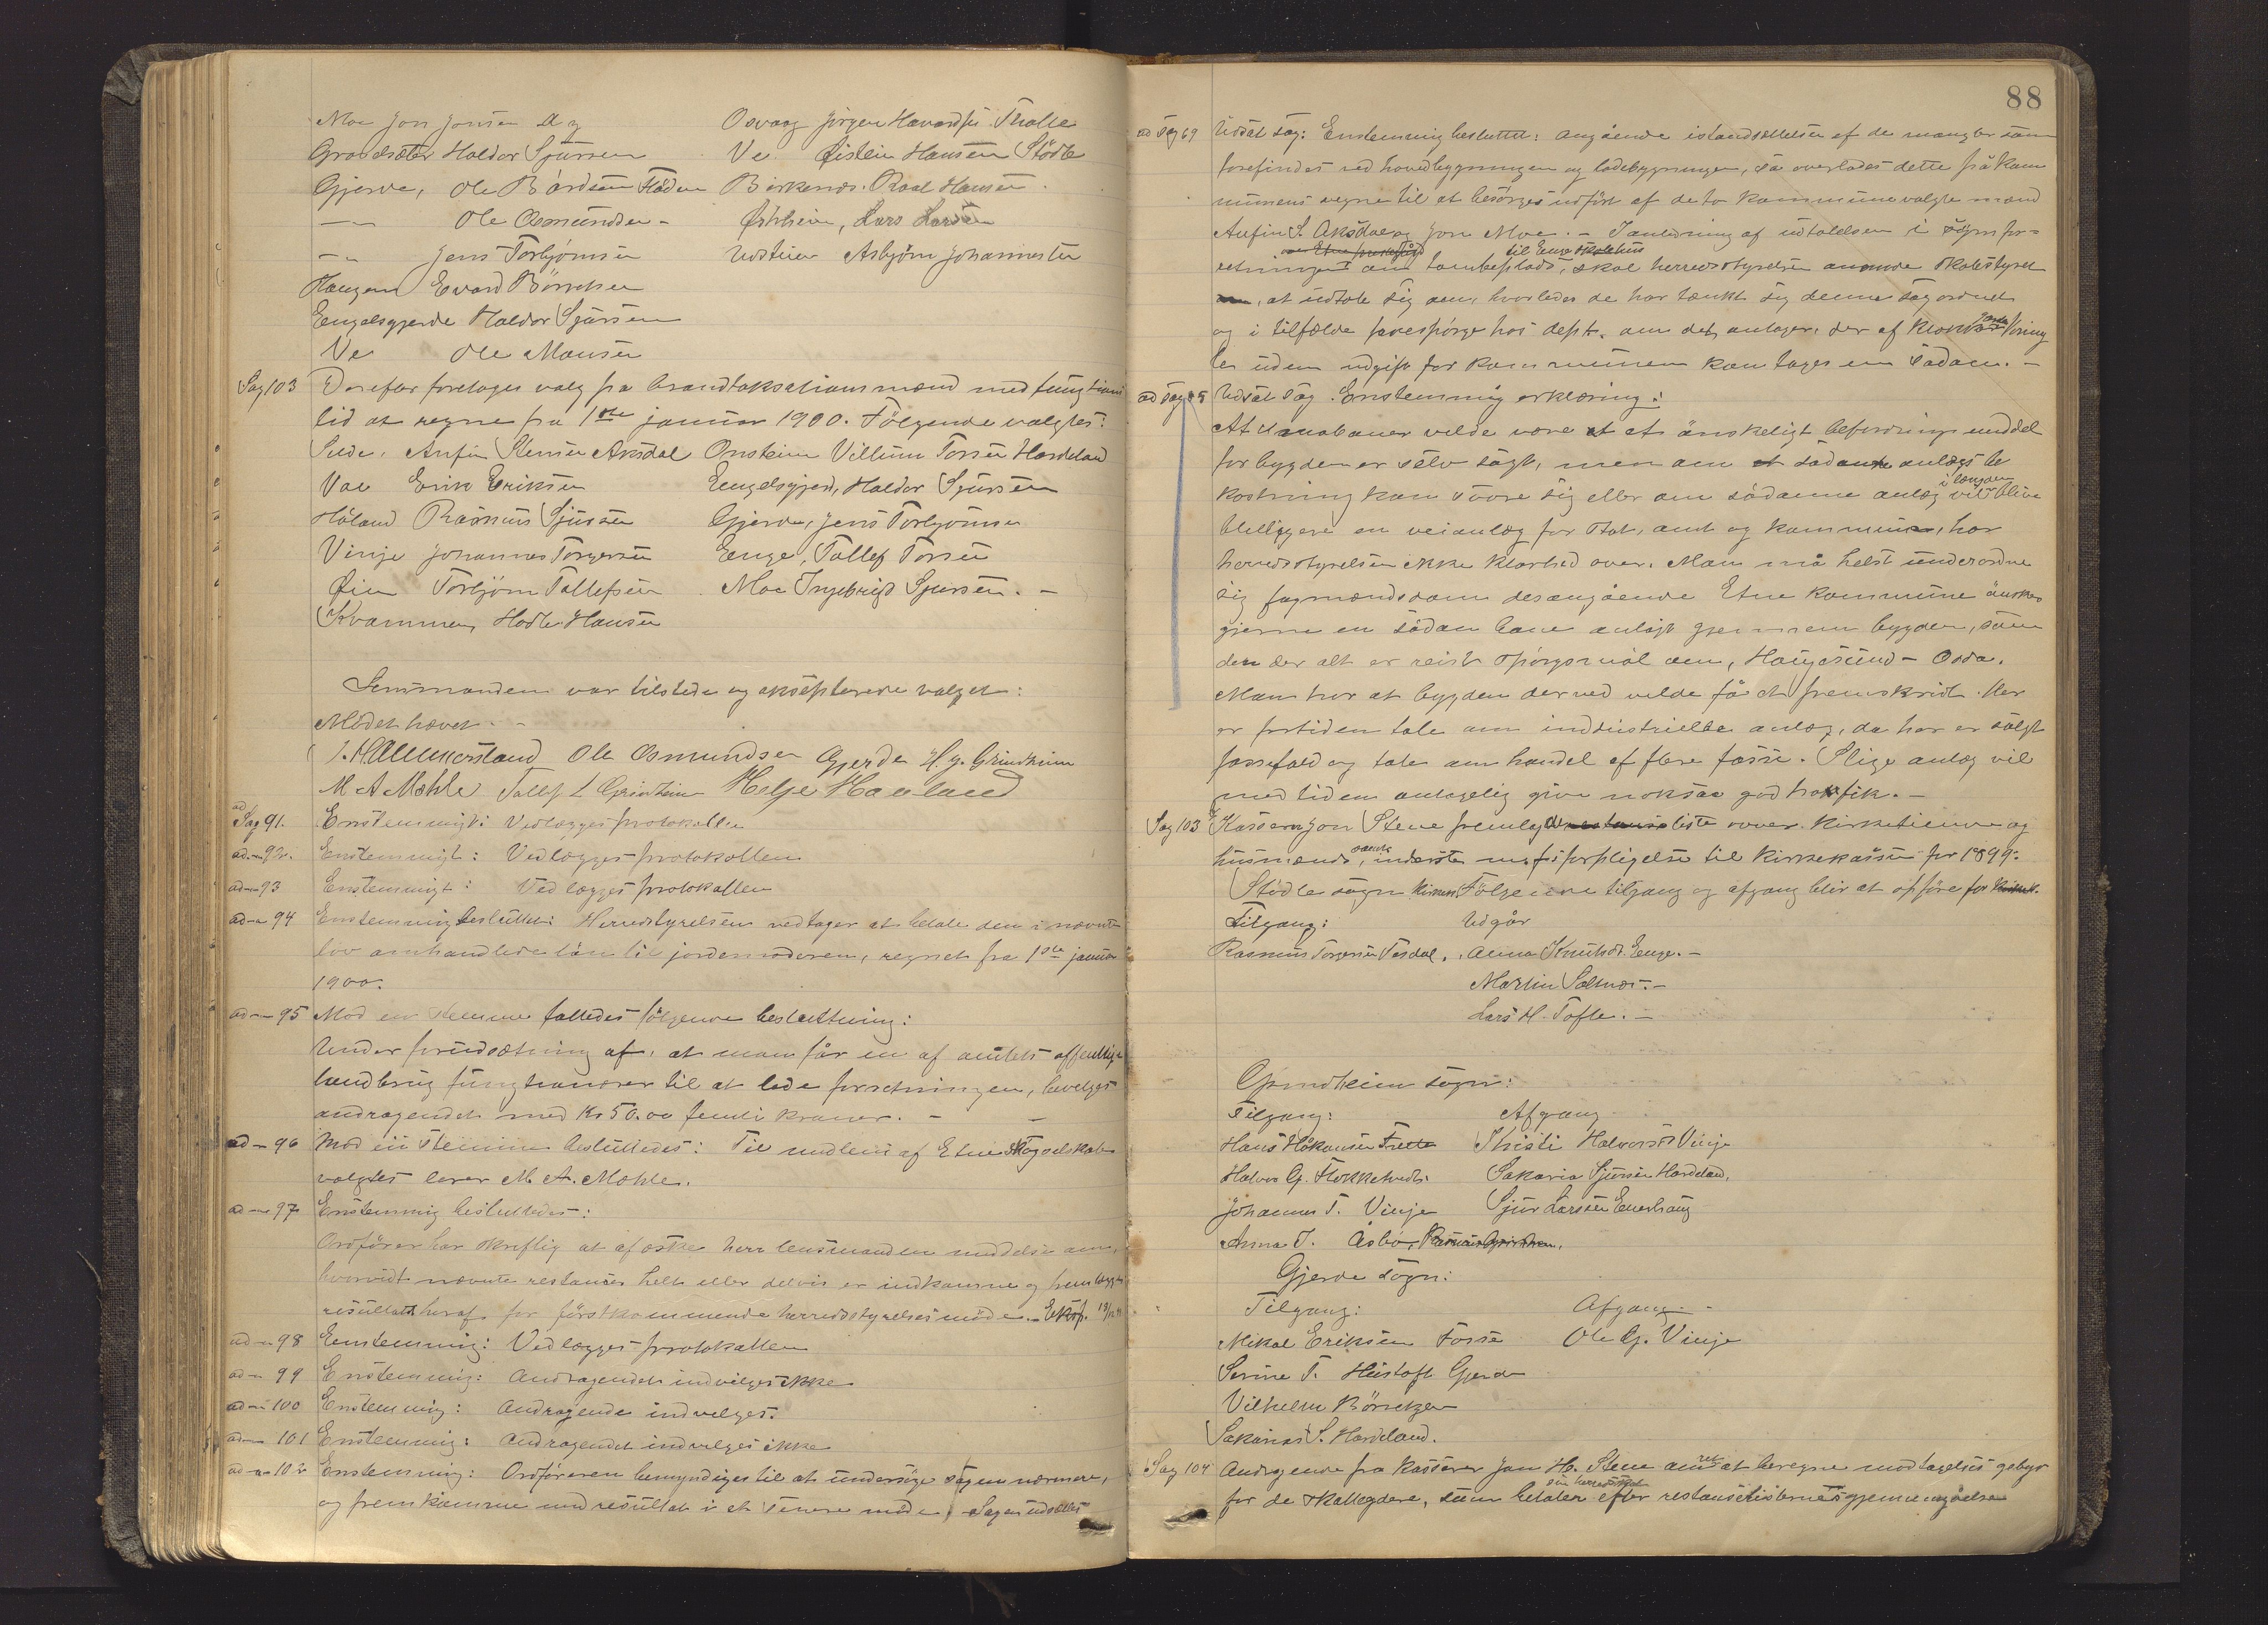 Moe Jon Jonsen Myr
Osvaag Jørgen Havardsen Tralle
Grovdsæter Haldor Sjursen
Ve Øistein Hansen Stödle
Gjerde, Ole Bårdsen
Birkenæs. Roal Hansen
— " — Ole Osmundsen -
Østrheim, Lars Larsen
— " — Jens Torbjørnsen
Asbjørn Johannesen
Haugen Evard Börretsen
Engelsgjerde Haldor Sjursen
Ve Ole Monsen
Sag 103 Derefter foretoges valg på brandtakstionsmænd med fungtions
tid at regne fra 1ste januar 1900. Følgende valgtes:
Silde, Anfin Stensen Aksdal Onsteim Villum Torsen Hardeland
Vae Erik Eriksen Engelsgjerd, Haldor Sjursen
Håland Rasmus Sjursen Gjerde, Jens Torbjørnsen
Vinje Johannes Torgersen Enge, Tollef Torsen
Øien Torbjørn Tollefsen Moe Ingebrigt Sjursen. –
Kvammen, Hodle Hansen
Lensmanden var tilstede og aksepterede valget:
Mødet hævet. -
Ole Osmundsen Gjerde H. G. Grindheim
M A Mæhle Tollef L Grindheim Helge Haaland
ad Sag 91. Enstemmigt: Vedlægges protokollen
ad – 92. Enstemmigt: Vedlægges protokollen
ad – 93 Enstemmigt: Vedlægges protokollen
ad – 94 Enstemmig besluttet: Herredstyrelsen vedtager at betale den i nævnte
lov omhandlede løn til jordemoderen, regnet fra 1ste januar
1900.
ad – 95 Mod en stemme fattedes følgende beslutning:
Under forudsætning af, at man får en af amtets offentlige
landbrug fungtionærer til at lede forretningen, bevilges
andragendet med Kr 50.00 femti kroner. –
ad – 96 Mod een stemme besluttedes: Til medlem af Etne skogselskab
valgtes lærer M. A. Mæhle.
ad – 97 Enstemmig besluttedes:
Ordfører har skriftlig at afæske herr lensmanden meddelse om,
hvorvidt nævnte restancer helt eller delvis er indkomne og fremlægges
resultatet heraf for førstkommende herredsstyrelsesmøde. – Eksp. 19/12 99
ad – 98 Eenstemmig: Vedlægges protokollen
ad – 99 Enstemmig: Andragendet indvilges ikke
ad – 100 Enstemmig: Andragende indvilges.
ad – 101 Enstemmig: Andragendet indvilges ikke
ad – 102 Enstemmig: Ordføreren bemyndiges til at undersøge sagen nærmere,
og fremkomme med resultat i et senere møde. Sagen udsættes
88
ad sag 69 Udsat sag: Enstemmig besluttet: angående istandsættelse af de mangler som
forefindes ved hovedbygningen og ladebygningen, så overlades dette på kom
munens vegne til at besørges udført af de to kommunevalgte mænd
Anfin S. Aksdal og Jon Moe. – I anledning af udtalelsen i skjøn for-
til Enge skolehus
retningen om tombeplads, skal herredsstyrelsen anmode skolestyret
, at udtale sig om, hvorledes de har tænkt sig denne sag ordnet
og i tilfælde forespørge hos dept. om det antager, der af
les uden udgift for kommunen kan tages en sådan. –
ad sag 85 Udsat sag. Enstemmig erklæring:
At smalbaner vilde være et ønskeligt befordringsmiddel
for bygden er selv sagt, men om sådant anlægs be
kostning kan svare sig eller om sådanne anlæg i længden vil blive
billigere en veianlæg for stat, amt og kommune, har
herredsstyrelsen ikke klarhed over. Man må helst underordne
sig fagmændsdom desangående Etne kommune ønsker
gjerne en sådan bane anlagt gjennem bygden, som
den der alt er reist spørgsmål om, Haugesund – Odda.
Man tror at bygden derved vilde få et fremskridt. Her
er fortiden tale om industrielle anlæg, da her er solgt
fossefald og tale om handel af flere fosse. Slige anlæg vil
med tiden antagelig give noksaa god trafik. –
Sag 103 Kasserer Jon Stene fremlagde liste over kirketiende og
husmænds samt inderster med forpligtelse til kirkekassen for 1899.
Stödle sogn Følgende tilgang og afgang blir at opføre for
Tilgang: Udgår
Rasmus Torgersen Tesdal. Anna Knutsdt. Enge. –
Martin Sæltnæs. –
Lars H. Tofte. –
Grindheim sogn:
Tilgang: Afgang
Hans Håkonsen Frette Kristi Halvorsdt. Vinje
Halvor G. Flokketvedt. Sakaria Sjursen Hardeland.
Johannes T. Vinje Sjur Larsen Enerhaug
Anna J. Åsbø, Rasmus Grindheim.
Gjerde sogn:
Tilgang: Afgang –
Mikal Eriksen Fosse Ole G. Vinje
Serine T. Hustoft Gjerde
Vilhelm Börretzen
Sakarias S. Hardeland.
Sag 104 Andragende fra kasserer Jon H. Stene om ret at beregne modtagelses gebyr
for de skatteydere, som betaler sin herredskat efter restanselisternes gjennemgåelse